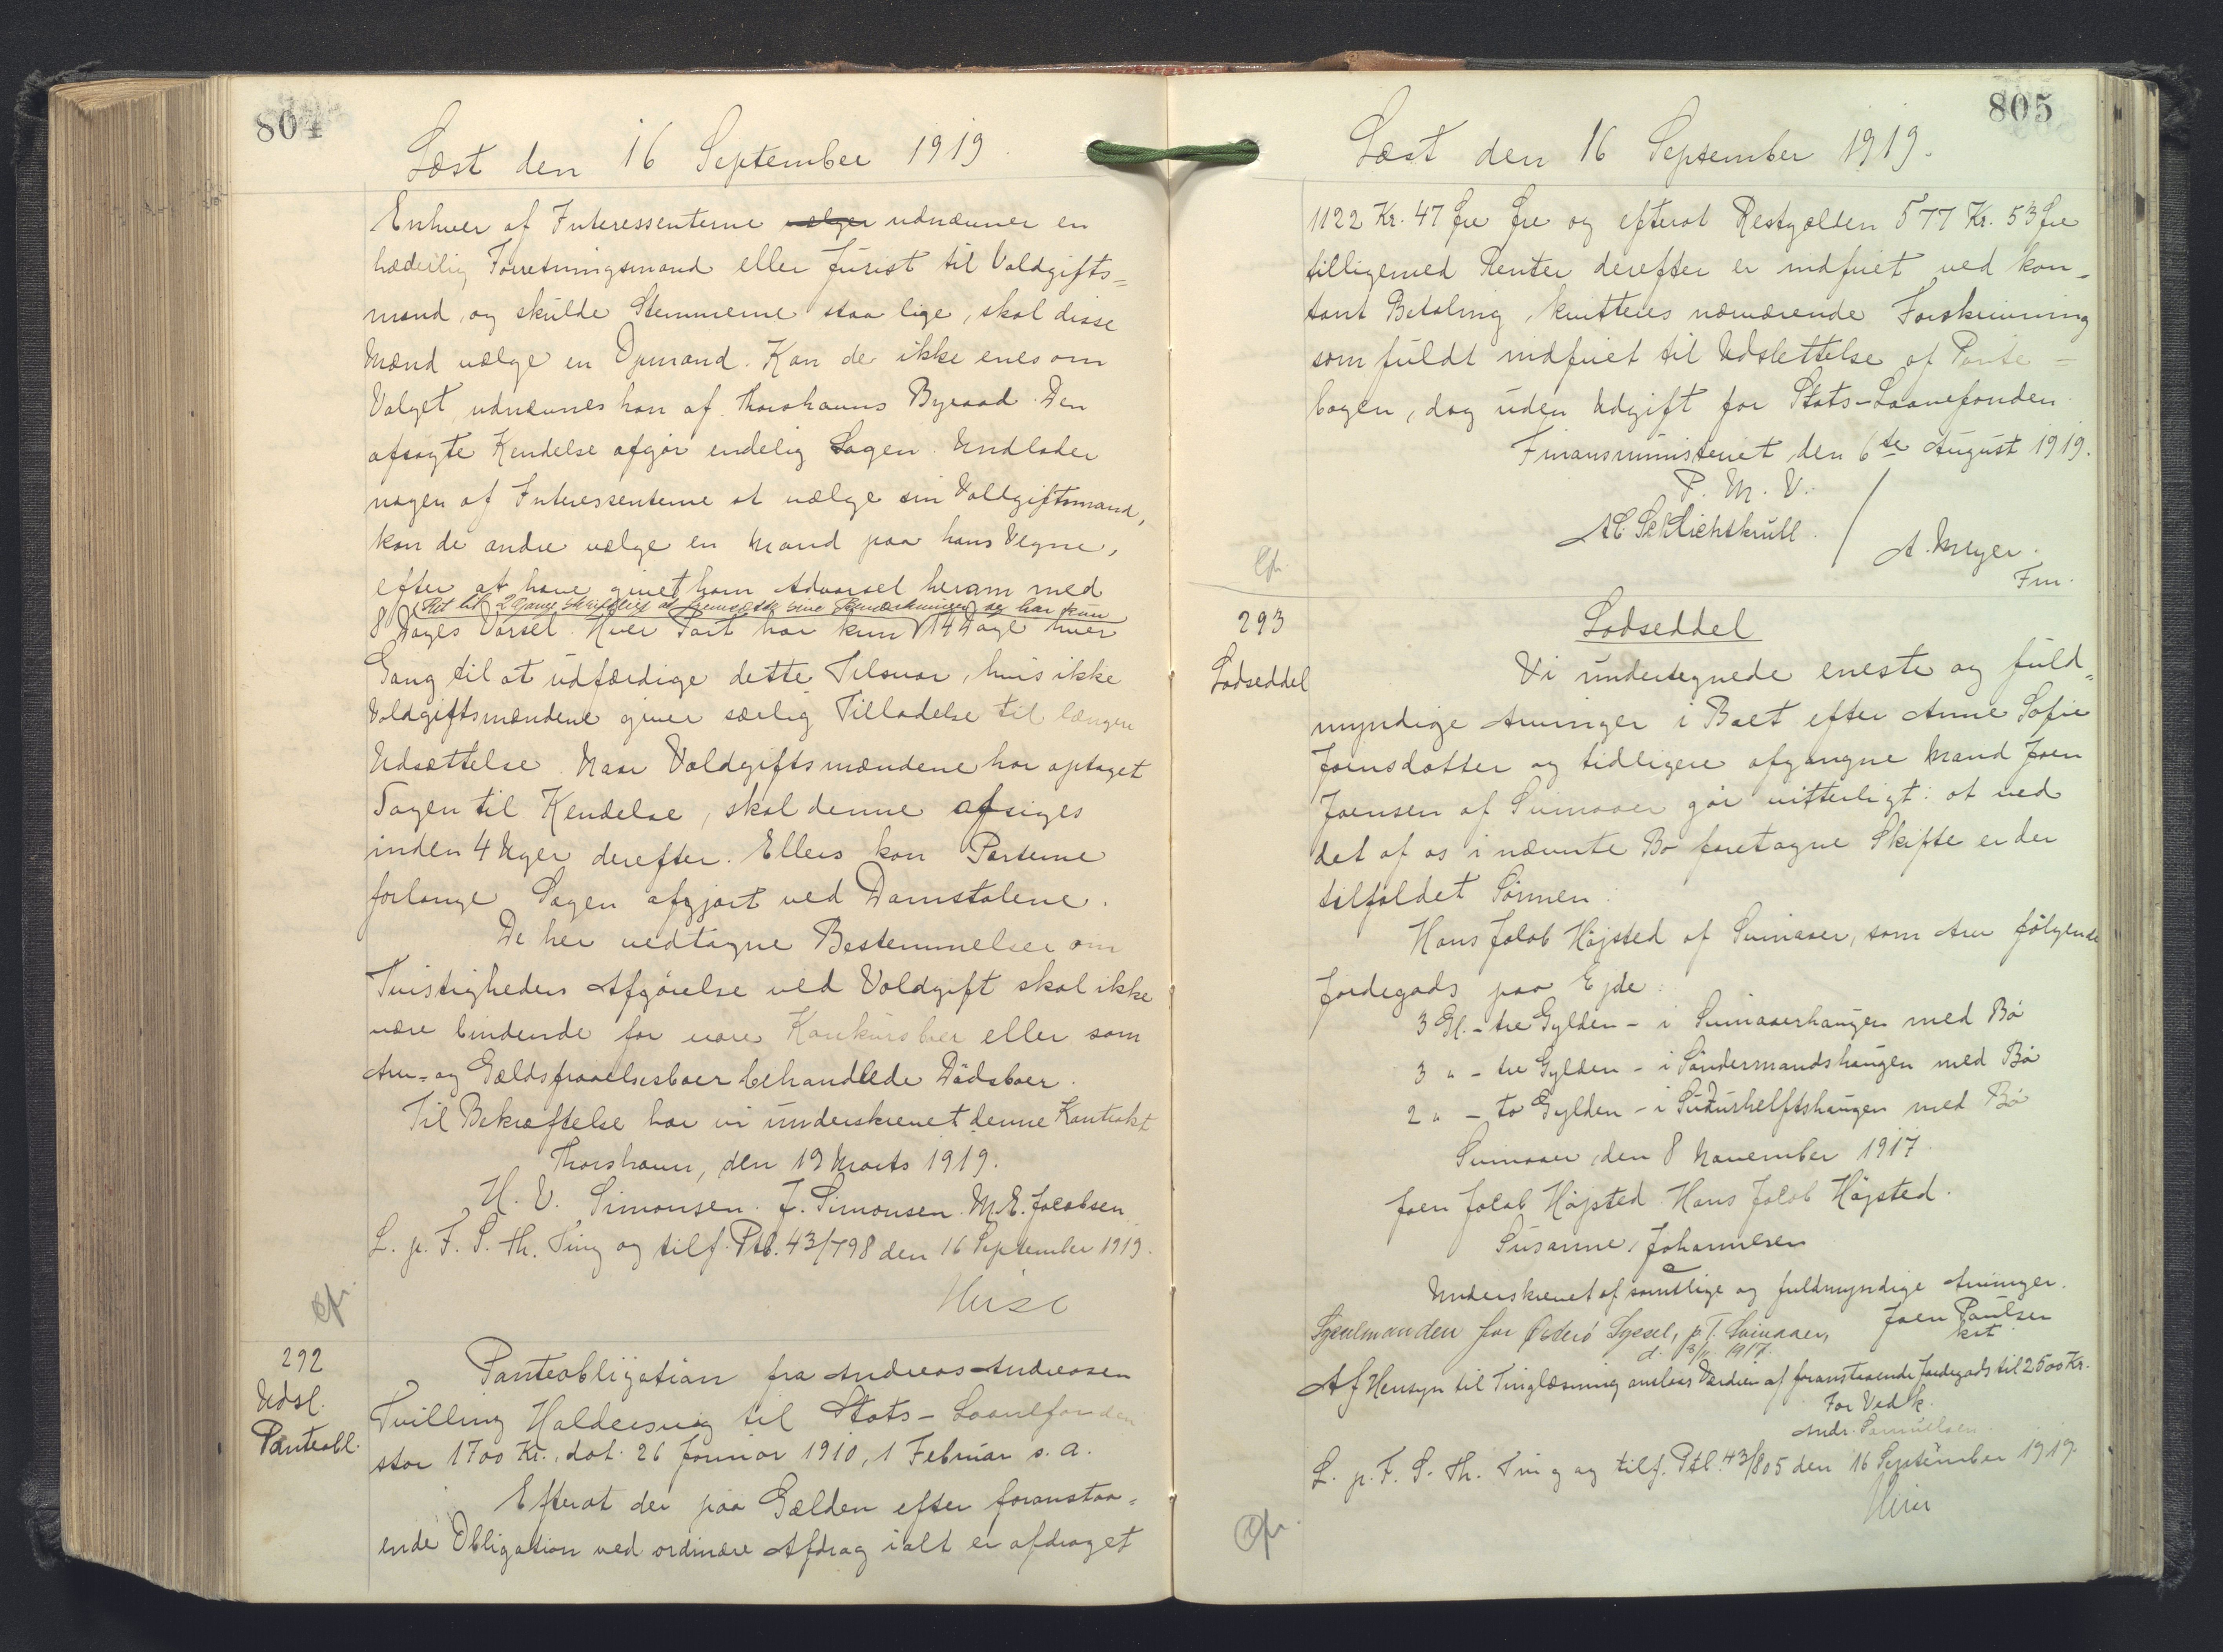 804
Læst den 16 September 1919.
Enhver af Interessenterne vælger udnævner en
hæderlig Forretningsmand eller Jurist til Voldgifts=
mand, og skulde Stemmerne staa lige, skal disse
Mænd vælge en Opmand. Kan de ikke enes om
Valget, udnævnes han af Thorshavns Byraad. Den
afsagte Kendelse afgør endelig Sagen. Undlader
nogen af Interessenterne at vælge sin Voldgiftsmand,
kan de andre vælge en Mand paa hans Vegne,
efter at have givet ham Advarsel herom med
Ret til 2 Gange skriftligt at fremsætte sine Bemærkninger og har kun
8 Dages Varsel. Hver Part har kun 14 Dage hver
Gang til at udfærdige dette Tilsvar, hvis ikke
Voldgiftsmændene giver særlig Tilladelse til længere
Udsættelse. Naar Voldgiftsmændene har optaget
Sagen til Kendelse, skal denne afsiges
inden 4 Uger derefter. Ellers kan Parterne
forlange Sagen afgjort ved Domstolene.
De her vedtagne Bestemmelser om
Tvistigheders Afgörelse ved Voldgift skal ikke
være bindende for vore Konkursboer eller som
Arv- og Gældsfragaaelsesboer behandlede Dödsboer.
Til Bekræftelse har vi underskrevet denne Kontrakt
Thorshavn, den 19 Marts 1919.
H. V. Simonsen. J. Simonsen. M. E. Jacobsen
L. p. F. S. Th. Ting og tilf. Ptb. 43/798 den 16 September 1919.
cfr.
292
Udsl.
Panteobl.
Panteobligation fra Andreas Andreasen
Tvilling Haldersvig til Stats-Laanefonden
stor 1700 Kr., dat. 26 Januar 1910, 1 Februar s. a.
Efterat der paa Gælden efter foranstaa=
ende Obligation ved ordinære Afdrag ialt er afdraget
805
Læst den 16 September 1919.
1122 Kr. 47 Øre Øre og efterat Restgælden 577 Kr. 53 Øre
tilligemed Renter derefter er indfriet ved kon=
tant Betaling, kvitteres nærværende Forskrivning
som fuldt indfriet til Udslettelse af Pante=
bogen, dog uden Udgift for Stats-Laanefonden.
Finansministeriet, den 6te August 1919.
P. M. V.
Schlichtkrull / A. Meyer.
Fm.
cfr.
293
Lodseddel
Lodseddel
Vi undertegnede eneste og fuld=
myndige Arvinger i Boet efter Anne Sofie
Joensdatter og tidligere afgangne Mand Joen
Joensen af Svinaaer gör vitterligt: at ved
det af os i nævnte Bo foretagne Skifte er der
tilfaldet Sönnen:
Hans Jakob Höjsted af Svinaaer, som Arv fölgende
Jordegods paa Ejde:
3 Gl. - tre Gylden - i Svinaaerhaugen med Bö
3 " - tre Gylden - i Söndermandshaugen med Bö
2 " - to Gylden - i Sudurhelftshaugen med Bö
Svinaaer, den 8 November 1917.
Joen Jakob Höjsted. Hans Jakob Höjsted.
Susanne Johannesen
Underskrevet af samtlige og fuldmyndige Arvinger.
Sysselmanden for Österö Syssel, p. T. Svinaaer,
d. 8/11 1917.
Joen Poulsen
kst.
Af Hensyn til Tinglæsning ansloes Værdien af foranstaaende Jordegods til 2500 Kr.
For Vedk.
Andr. Samuelsen
L. p. F. S. Th. Ting og tilf. Ptb. 43/805 den 16 September 1919.
cfr.